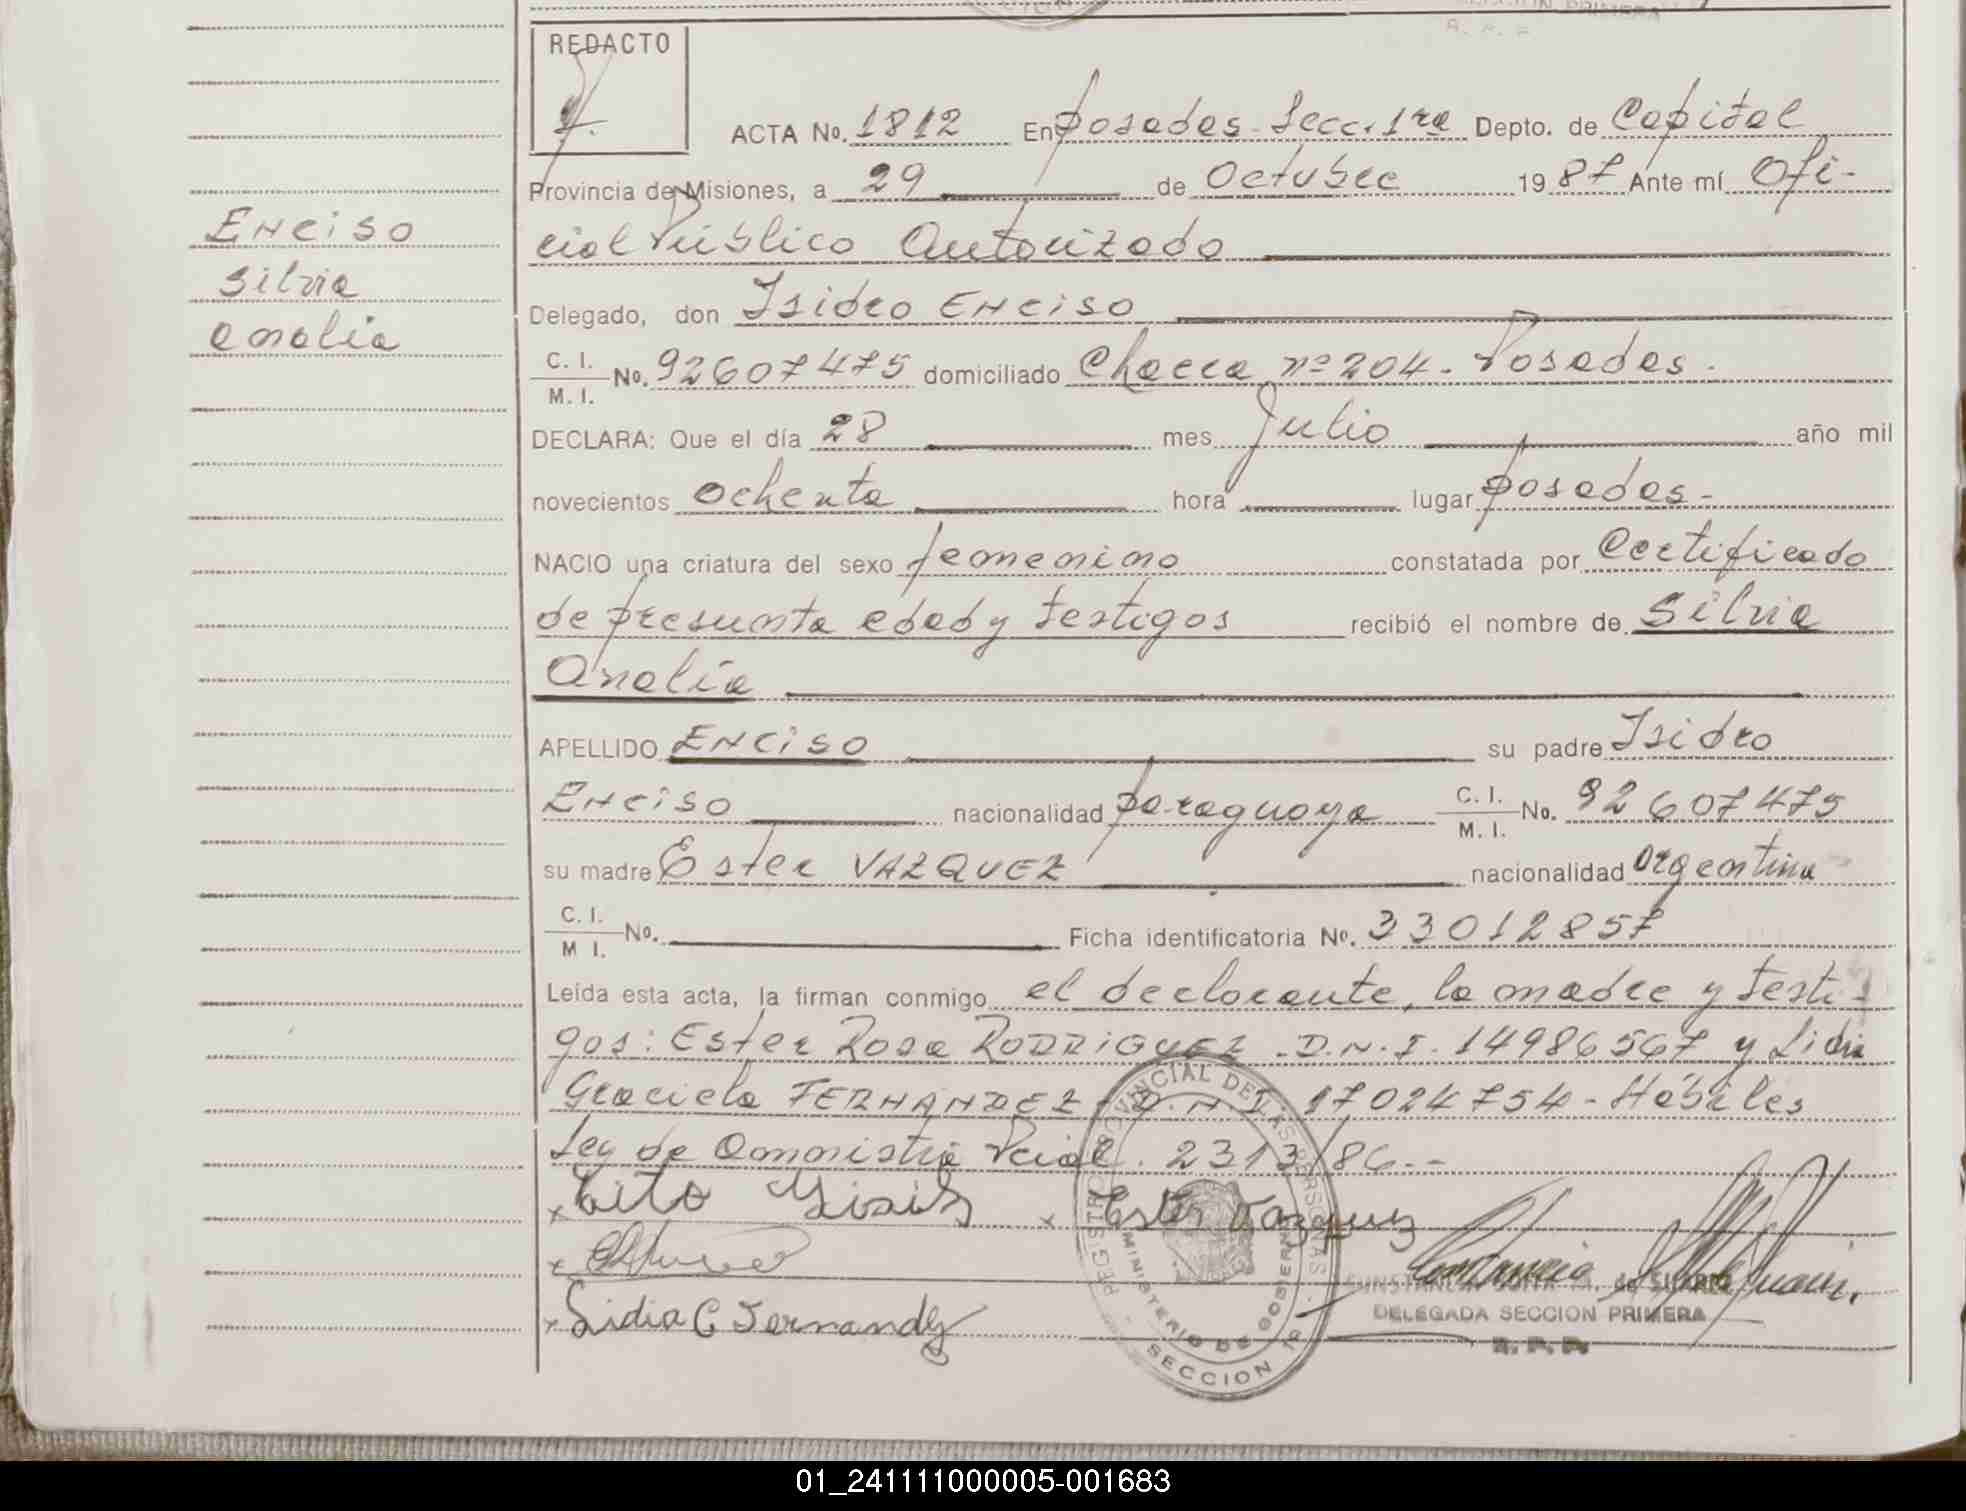 REDACTO
ACTA No. 1812 En Posadas - Secc. 1ra Depto. de Capital
Provincia de Misiones, a 29 de Octubre 1987 Ante mí Ofi-
cial Público Autorizado
Enciso
Silvia
Analía
Delegado, don Isidro Enciso
C. I.
M. I. No. 92607475 domiciliado Chacra nº 204 - Posadas.
DECLARA: Que el día 28 mes Julio año mil
novecientos Ochenta hora lugar Posadas -
NACIO una criatura del sexo femenino constatada por Certificado
de presunta edad y testigos recibió el nombre de Silvia
Analía
APELLIDO Enciso su padre Isidro
Enciso nacionalidad paraguaya C. I. M. I. No. 92607475
su madre Ester VAZQUEZ nacionalidad Argentina
C. I.
M I. No. Ficha identificatoria No. 33012857
Leída esta acta, la firman conmigo el declarante, la madre y testi-
gos: Ester Rosa RODRIGUEZ - D.N.I. 14986567 y Lidia
Graciela FERNANDEZ - D.N.I. 17024754 - Hábiles
Ley de Amnistía Pcial. 2313/86.-
x x Ester Vazquez
x
x Lidia G Fernandez
REGISTRO PROVINCIAL DE LAS PERSONAS
MINISTERIO DE GOBIERNO
SECCION 1ª
DE SUAREZ
DELEGADA SECCION PRIMERA
R. P. P.
SECCION PRIMERA
R. P. P.
01_241111000005-001683